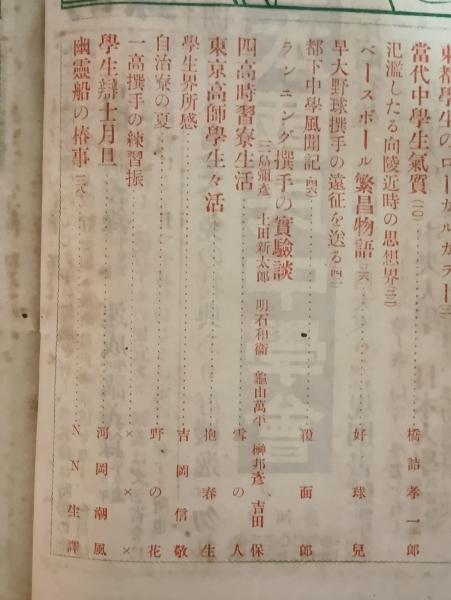 東都學生のローカルカラー(一)
當代中學生氣質(二〇)……橋詰孝一郎
氾濫したる向陵近時の思想界(三二)
ベースボール繁昌物語(二六)……好球兒
早大野球撰手の遠征を送る(四一)
都下中學風聞記(四六)……覆面郎
ランニング撰手の實驗談
三島彌彥 土田新太郎 明石和衞 龜山萬平 榊邦彥 吉田保
四高時習寮生活……雪の人
東京高師學生々活……抱春生
學生界所感……吉岡信敬
自治寮の夏……野の花
一高撰手の練習振……×××
學生辯士月旦……河岡潮風
幽靈船の椿事(三八)……NN生譯